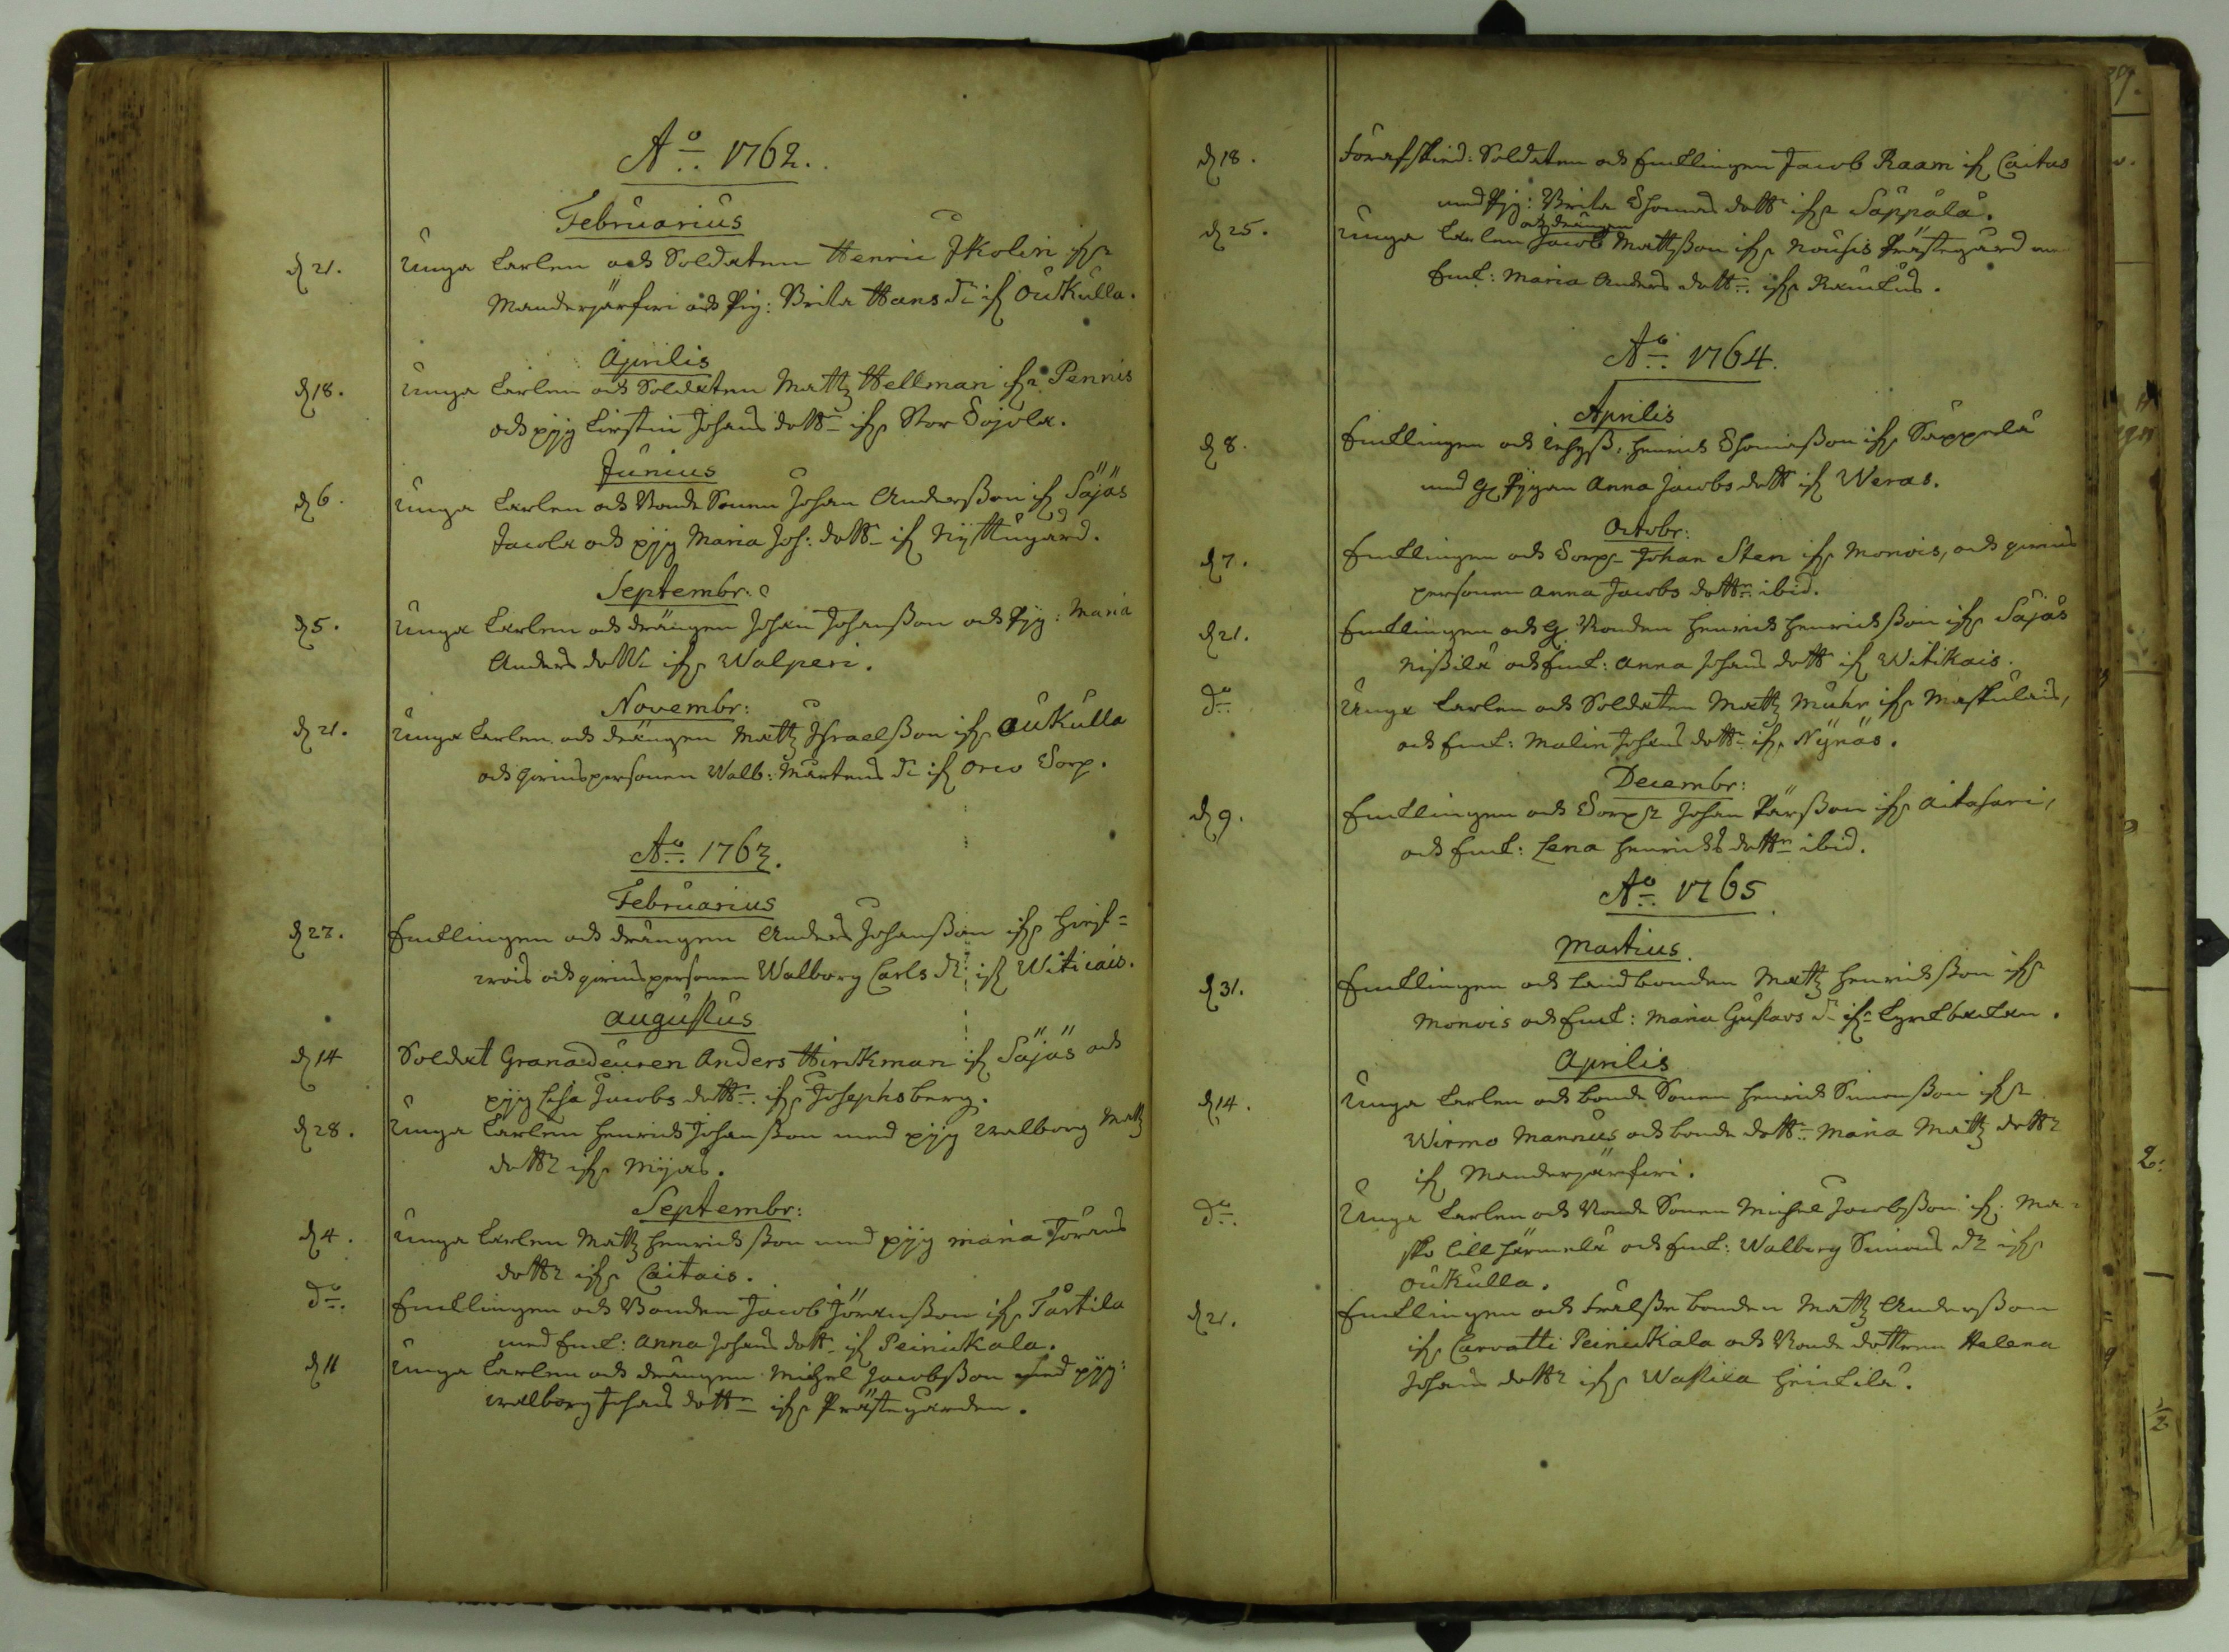 Ao. 1762.
Februarius
d 21. Unga Carlen och Soldaten Henric Skolin ifr
Manderjärfwi och Pig: Brita Hans dr if Oukulla.
Aprilis
d 18. Unga Carlen och Soldaten Matts Hellman ifr Pennis
och pig Kirstin Johans dottr ifr Stor
Junius
d 6. Unga Carlen och Bonde Sonen Johan Andersson if Säjäs
Jacola och pig Maria Joh: dottr if Nyttugård.
Septembr:
d 5. Unga Carlen och drängen Johan Johansson och Pig: Maria
Anders dottr ifr Walperi.
Novembr:
d 21. Unga Carlen och drängen Matts Israelsson ifr Oukulla
och qwinspersonen Walb: Mårtens dr if Torp.
Ao. 1763.
Februarius
d 27. Enklingen och drängen Anders Johansson ifr
och qwinspersonen Walborg Carls dr if Witicais.
Augustus
d 14 Soldat Granadeuren Anders Hirckman if Säjäs och
pig Lisa Jacobs dottr ifr Josephsberg.
d 28. Unga Carlen Henrich Johansson med pig Walborg Matts
dottr ifr
Septembr:
d 4. Unga Carlen Matts Henrichsson med pig Maria Jörans
dottr ifr Caitais.
do. Enklingen och Bonden Jacob Jöransson ifr Tårtila
med Enk: Anna Johans dott if Peinikala.
d 11 Unga Carlen och drängen Michel Jacobsson med pig:
Walborg Johans dottr ifr Prästegården.
d 18. Förafskied: Soldaten och Enklingen Jacob Raam if Caitas
med Pig: Brita Thomas dottr ifr Säppälä.
och drängen
d 25. Unga Carlen Jacob Mattsson ifr Nousis Prästegård
Enk: Maria Anders dottr ifr
Ao. 1764.
Aprilis
d 8. Enklingen och Inhys: Henrich Thomasson ifr Säppälä
med Pigan Anna Jacobs dott if Weras.
Octobr:
d 7. Enklingen och Torpr Johan Sten ifr Monois, och qwins
personen Anna Jacobs dottr ibid.
d 21. Enklingen och Bonden Henrich Henrichsson ifr Säjäs
Nissilä och Enk: Anna Johans dott if Witikais.
do. Unga Carlen och Soldaten Matts Muhr ifr Maskulais,
och Enk: Malin Johans dottr ifr Nynäs.
Decembr:
d 9. Enklingen och Torpr Johan Pärsson ifr Aitasari,
och Enk: Lena Henrichs dottr ibid.
Ao. 1765.
Martius.
d 31. Enklingen och Landbonden Matts Henrichsson ifr
Monois och Enk: Maria Gustavs dr ifr
Aprilis
d 14. Unga Carlen och bonde Sonen Henrich Simonsson ifr
Wirmo Mannüs och bonde dottr Maria Matts dottr
if Manderjärfwi.
do. Unga Carlen och Bonde Sonen Michel Jacobsson if. Ma=
sko Lill Järmelä och Enk: Walborg Simons dr ifr
Oukulla.
d 21. Enklingen och frälse bonden Matts Andersson
ifr Carvatti Peinikala och Bonde dottren Helena
Johans dottr ifr Wastixa Heickilä.